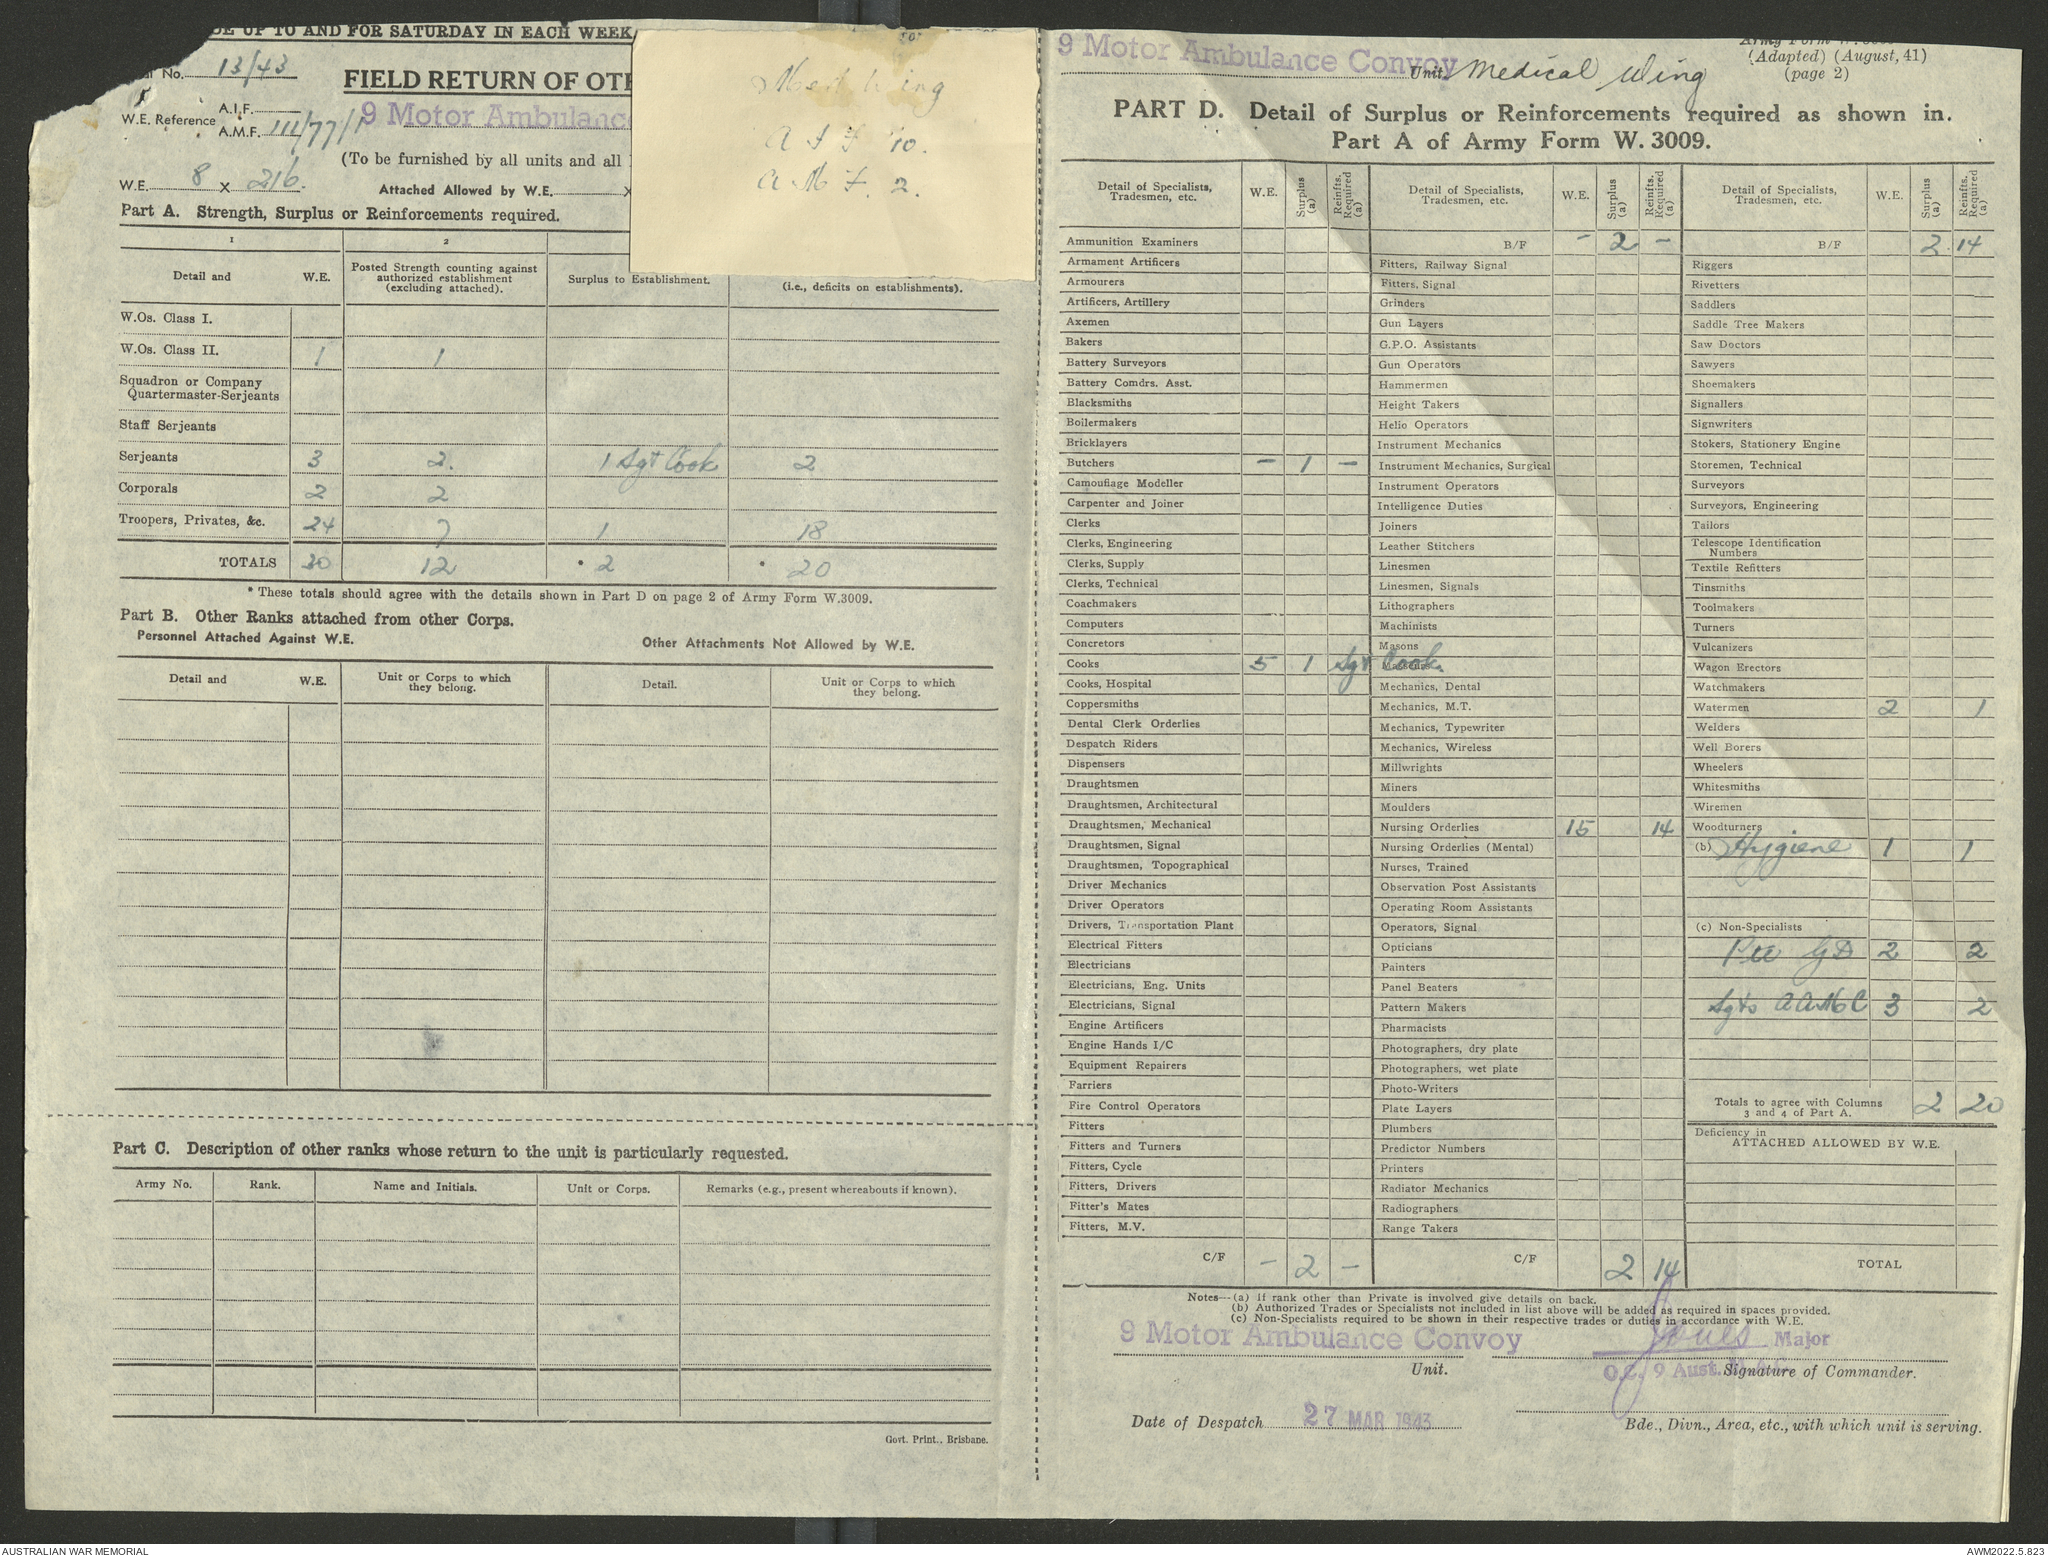 DE UP TO AND FOR SATURDAY IN EACH WEEK
No. 13/43
FIELD RETURN OF OTH
W.E. Reference A.I.F.
A.M.F. III/77/1
9 Motor Ambulanc
(To be furnished by all units and all
W.E. 8 x 216.
Attached Allowed by W.E. x
Med Wing
A I F 10.
A.M.F. 2.
Part A. Strength, Surplus or Reinforcements required.
1 2
Detail and W.E. Posted Strength counting against authorized establishment (excluding attached). Surplus to Establishment. (i.e., deficits on establishments).
W.Os. Class I.
W.Os. Class II. 1 1
Squadron or Company
Quartermaster-Serjeants
Staff Serjeants
Serjeants 3 2. 1 Sgt Cook 2
Corporals 2 2
Troopers, Privates, &c. 24 7 1 18
TOTALS 30 12 * 2 * 20
* These totals should agree with the details shown in Part D on page 2 of Army Form W.3009.
Part B. Other Ranks attached from other Corps.
Personnel Attached Against W.E. Other Attachments Not Allowed by W.E.
Detail and W.E. Unit or Corps to which they belong. Detail. Unit or Corps to which they belong.
Part C. Description of other ranks whose return to the unit is particularly requested.
Army No. Rank. Name and Initials. Unit or Corps. Remarks (e.g., present whereabouts if known).
Govt. Print., Brisbane.
9 Motor Ambulance Convoy Unit Medical Wing
(Adapted) (August, 41)
(page 2)
PART D. Detail of Surplus or Reinforcements required as shown in.
Part A of Army Form W. 3009.
Detail of Specialists, Tradesmen, etc. W.E. Surplus (a) Reinfts. Required (a)
Ammunition Examiners
Armament Artificers
Armourers
Artificers, Artillery
Axemen
Bakers
Battery Surveyors
Battery Comdrs. Asst.
Blacksmiths
Boilermakers
Bricklayers
Butchers - 1 -
Camouflage Modeller
Carpenter and Joiner
Clerks
Clerks, Engineering
Clerks, Supply
Clerks, Technical
Coachmakers
Computers
Concretors
Cooks 5 1 Sgt Cook
Cooks, Hospital
Coppersmiths
Dental Clerk Orderlies
Despatch Riders
Dispensers
Draughtsmen
Draughtsmen, Architectural
Draughtsmen, Mechanical
Draughtsmen, Signal
Draughtsmen, Topographical
Driver Mechanics
Driver Operators
Drivers, Transportation Plant
Electrical Fitters
Electricians
Electricians, Eng. Units
Electricians, Signal
Engine Artificers
Engine Hands I/C
Equipment Repairers
Farriers
Fire Control Operators
Fitters
Fitters and Turners
Fitters, Cycle
Fitters, Drivers
Fitter's Mates
Fitters, M.V.
C/F - 2 -
Detail of Specialists, Tradesmen, etc. W.E. Surplus (a) Reinfts. Required (a)
B/F - 2 -
Fitters, Railway Signal
Fitters, Signal
Grinders
Gun Layers
G.P.O. Assistants
Gun Operators
Hammermen
Height Takers
Helio Operators
Instrument Mechanics
Instrument Mechanics, Surgical
Instrument Operators
Intelligence Duties
Joiners
Leather Stitchers
Linesmen
Linesmen, Signals
Lithographers
Machinists
Masons
Mechanics, Dental
Mechanics, M.T.
Mechanics, Typewriter
Mechanics, Wireless
Millwrights
Miners
Moulders
Nursing Orderlies 15 14
Nursing Orderlies (Mental)
Nurses, Trained
Observation Post Assistants
Operating Room Assistants
Operators, Signal
Opticians
Painters
Panel Beaters
Pattern Makers
Pharmacists
Photographers, dry plate
Photographers, wet plate
Photo-Writers
Plate Layers
Plumbers
Predictor Numbers
Printers
Radiator Mechanics
Radiographers
Range Takers
C/F 2 14
Detail of Specialists, Tradesmen, etc. W.E. Surplus (a) Reinfts. Required (a)
B/F 2 14
Riggers
Rivetters
Saddlers
Saddle Tree Makers
Saw Doctors
Sawyers
Shoemakers
Signallers
Signwriters
Stokers, Stationery Engine
Storemen, Technical
Surveyors
Surveyors, Engineering
Tailors
Telescope Identification Numbers
Textile Refitters
Tinsmiths
Toolmakers
Turners
Vulcanizers
Wagon Erectors
Watchmakers
Watermen 2 1
Welders
Well Borers
Wheelers
Whitesmiths
Wiremen
Woodturners
(b) Hygiene 1 1
(c) Non-Specialists
Pte GD 2 2
Sgts AAMC 3 2
Totals to agree with Columns 3 and 4 of Part A. 2 20
Deficiency in
ATTACHED ALLOWED BY W.E.
TOTAL
Notes—(a) If rank other than Private is involved give details on back.
(b) Authorized Trades or Specialists not included in list above will be added as required in spaces provided.
(c) Non-Specialists required to be shown in their respective trades or duties in accordance with W.E.
9 Motor Ambulance Convoy Major
Unit. O.C. 9 Aust. Signature of Commander.
Date of Despatch 27 MAR 1943
Bde., Divn., Area, etc., with which unit is serving.
AUSTRALIAN WAR MEMORIAL AWM2022.5.823